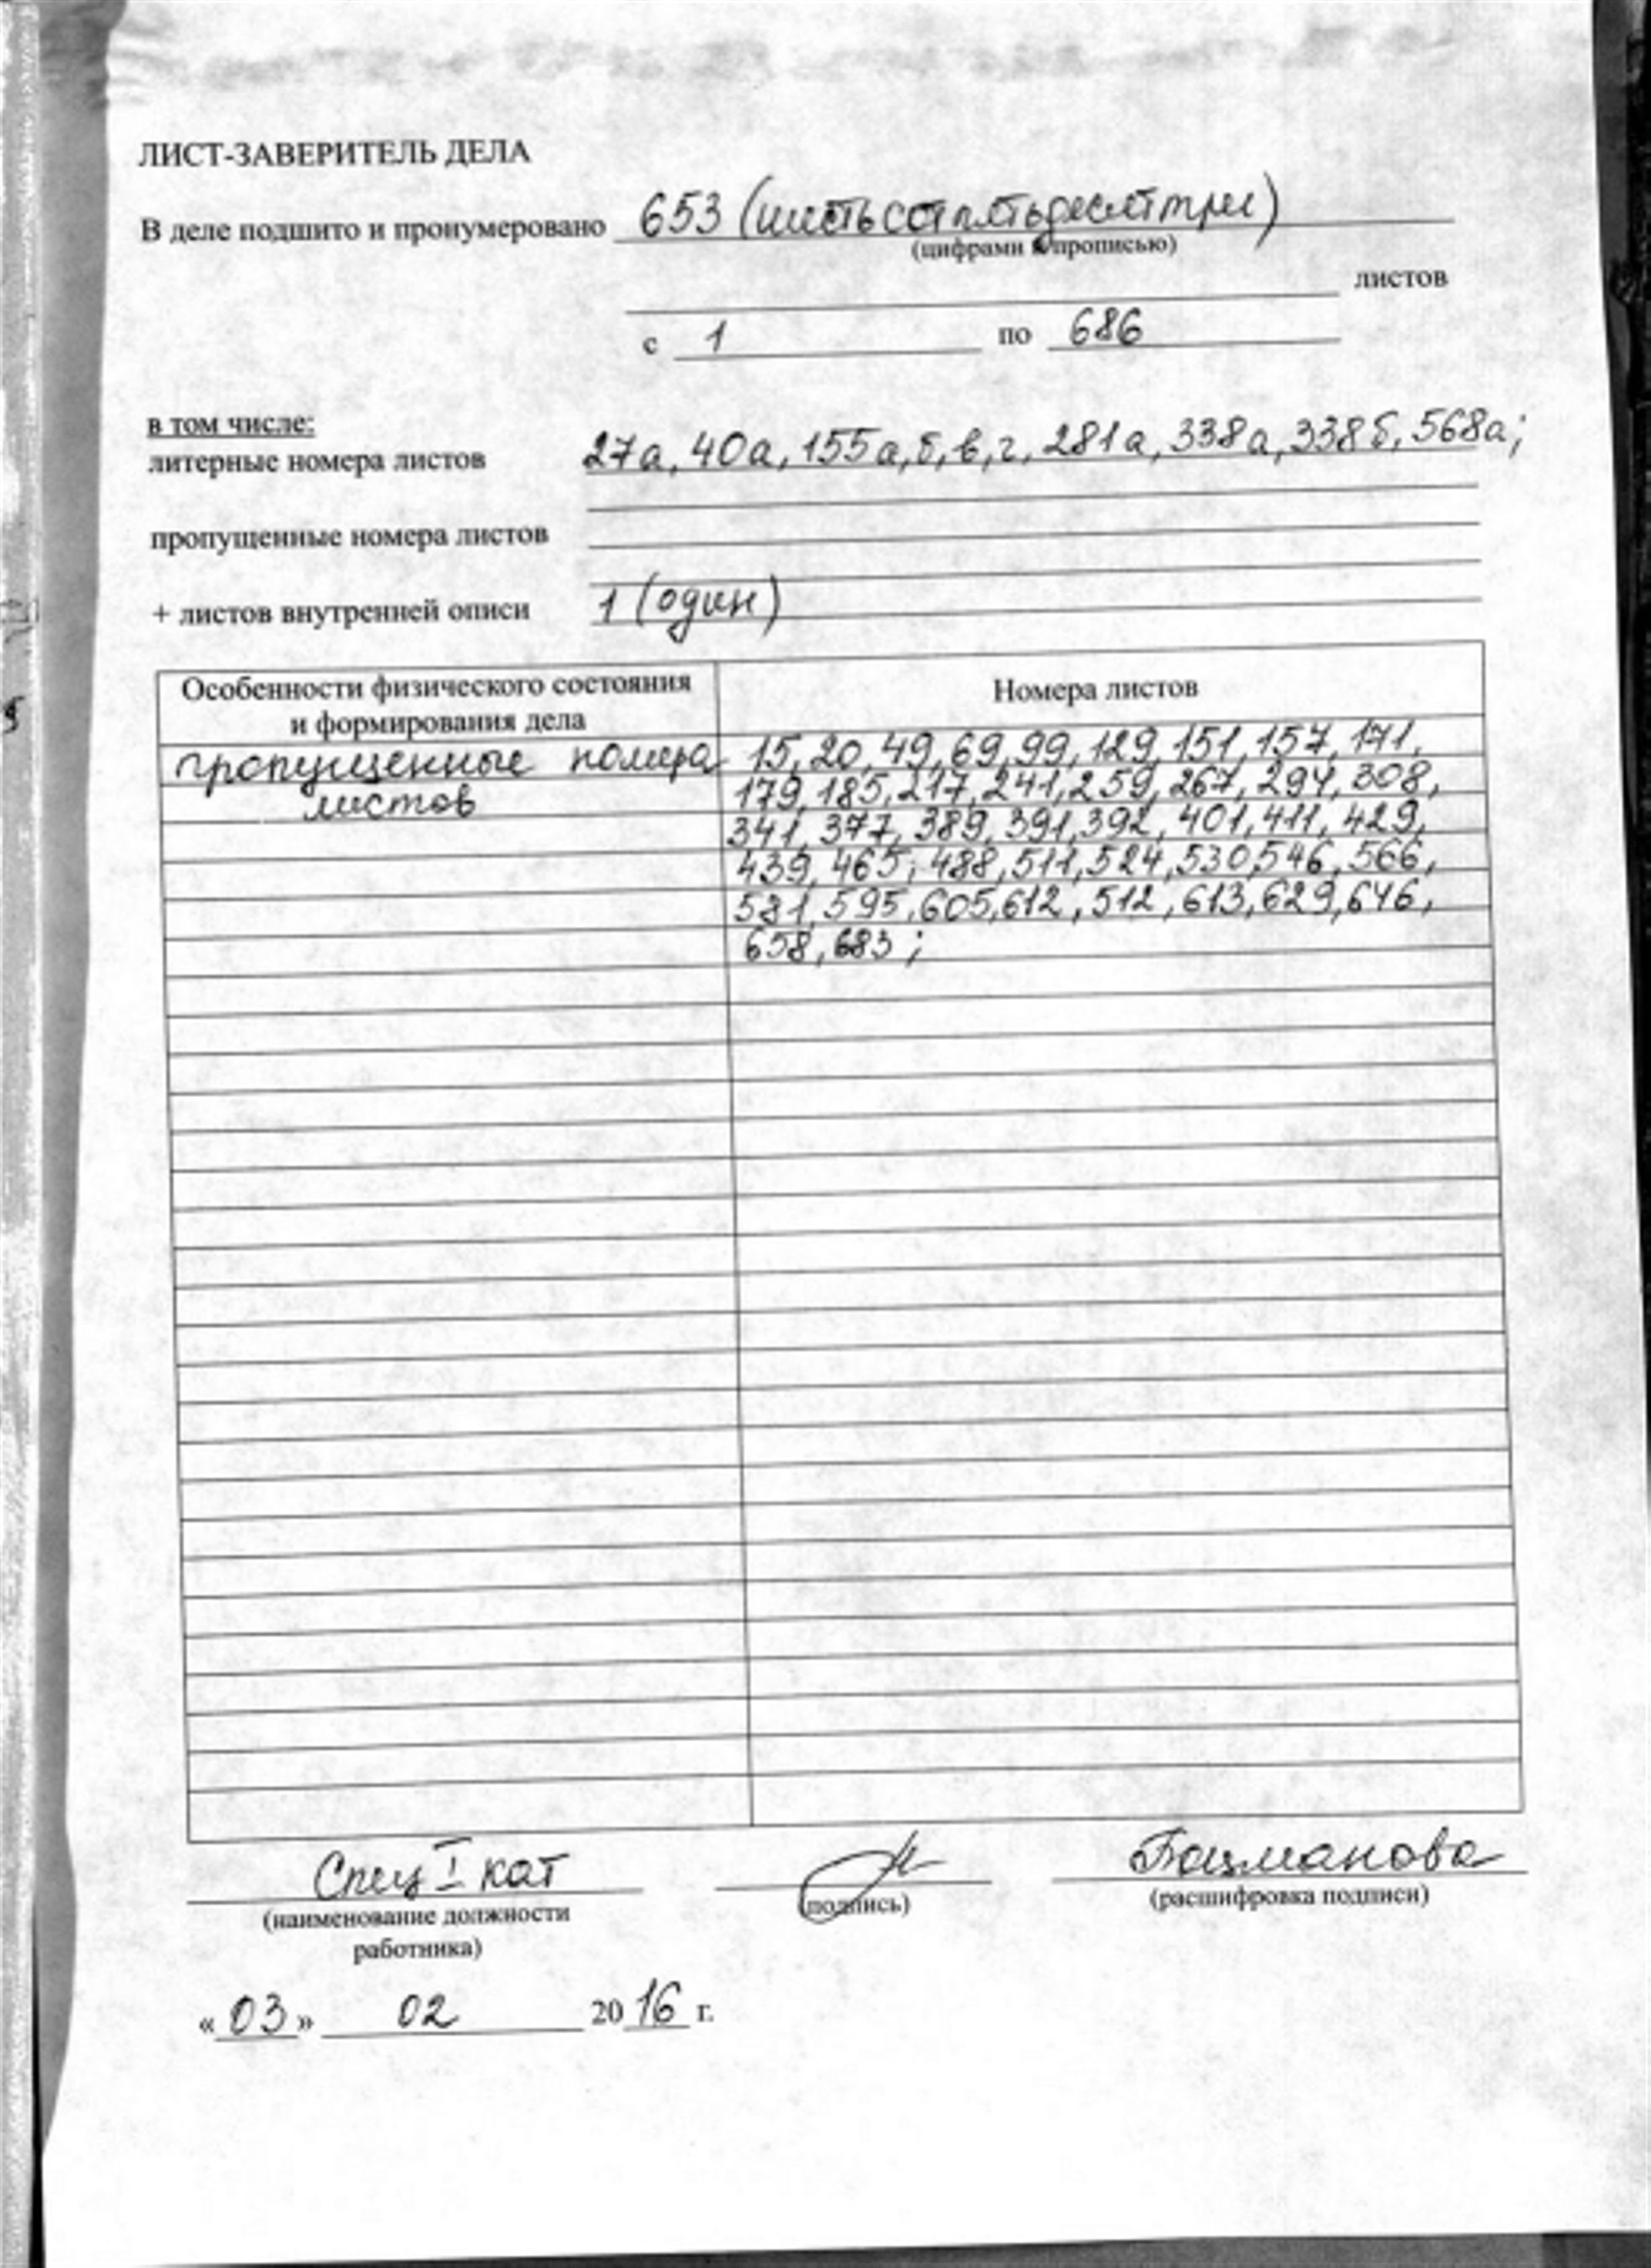 ЛИСТ-ЗАВЕРИТЕЛЬ ДЕЛА
В деле подшито и пронумеровано 653 (шестьсот пятьдесят три)
(цифрами и прописью)
листов
с 1 по 686
в том числе:
литерные номера листов 27а, 40а, 155а,б,в,г, 281а, 338а, 338б, 568а;
пропущенные номера листов
+ листов внутренней описи 1 (один)
Особенности физического состояния Номера листов
и формирования дела
пропущенные номера 15, 20, 49, 69, 99, 129, 151, 157, 171,
листов 179, 185, 217, 241, 259, 267, 294, 308,
341, 377, 389, 391, 392, 401, 411, 429,
439, 465, 488, 511, 524, 530, 546, 566,
581, 595, 605, 612, 512, 613, 629, 646,
658, 683;
Спец I кат
(наименование должности (подпись) (расшифровка подписи)
работника)
«03» 02 2016 г.